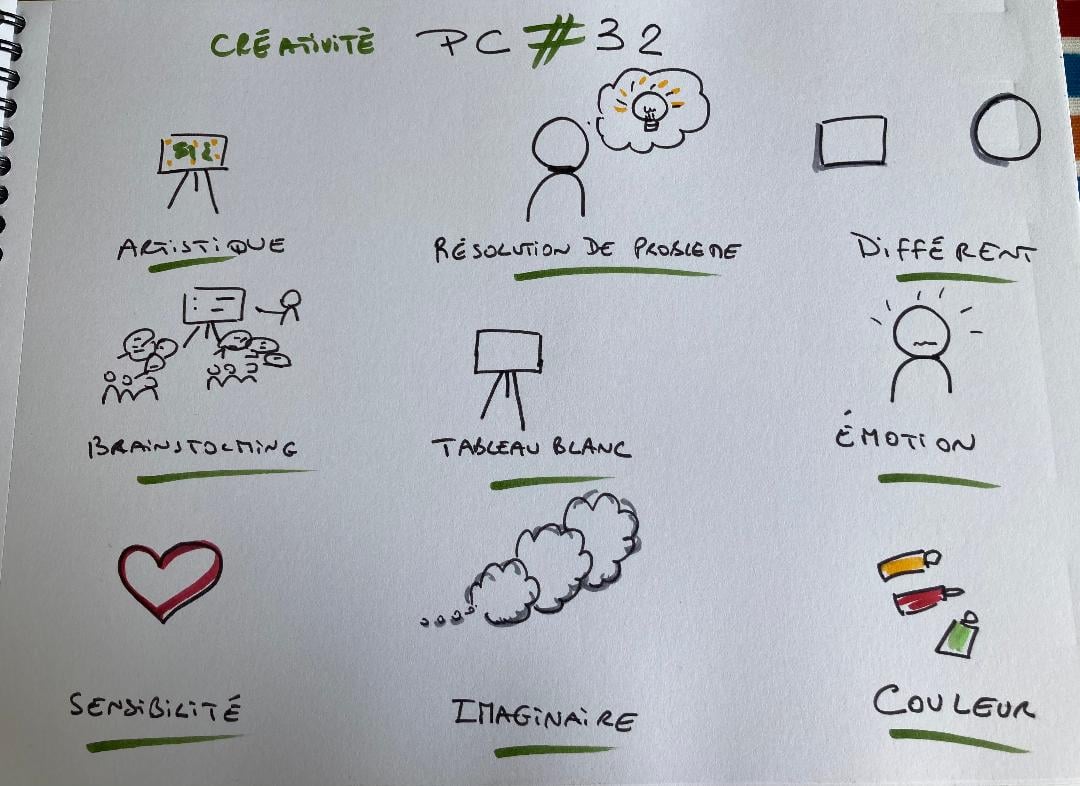 CRÉATIVITÉ PC #32
ARTISTIQUE RÉSOLUTION DE PROBLEME DIFFÉRENT
BRAINSTORMING TABLEAU BLANC ÉMOTION
SENSIBILITÉ IMAGINAIRE COULEUR